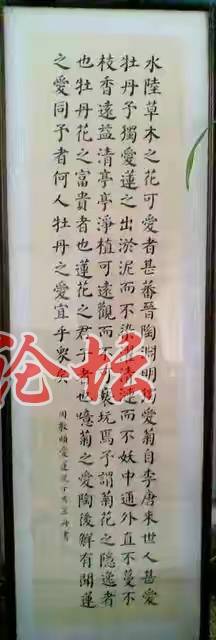 水陸草木之花可愛者甚蕃晉陶淵明獨愛菊自李唐來世人甚愛
牡丹予獨愛蓮之出淤泥而不染濯清漣而不妖中通外直不蔓不
枝香遠益清亭亭淨植可遠觀而不可褻玩焉予謂菊花之隱逸者
也牡丹花之富貴者也蓮花之君子者也噫菊之愛陶後鮮有聞蓮
之愛同予者何人牡丹之愛宜乎眾矣
周敦頤愛蓮說 書
论坛